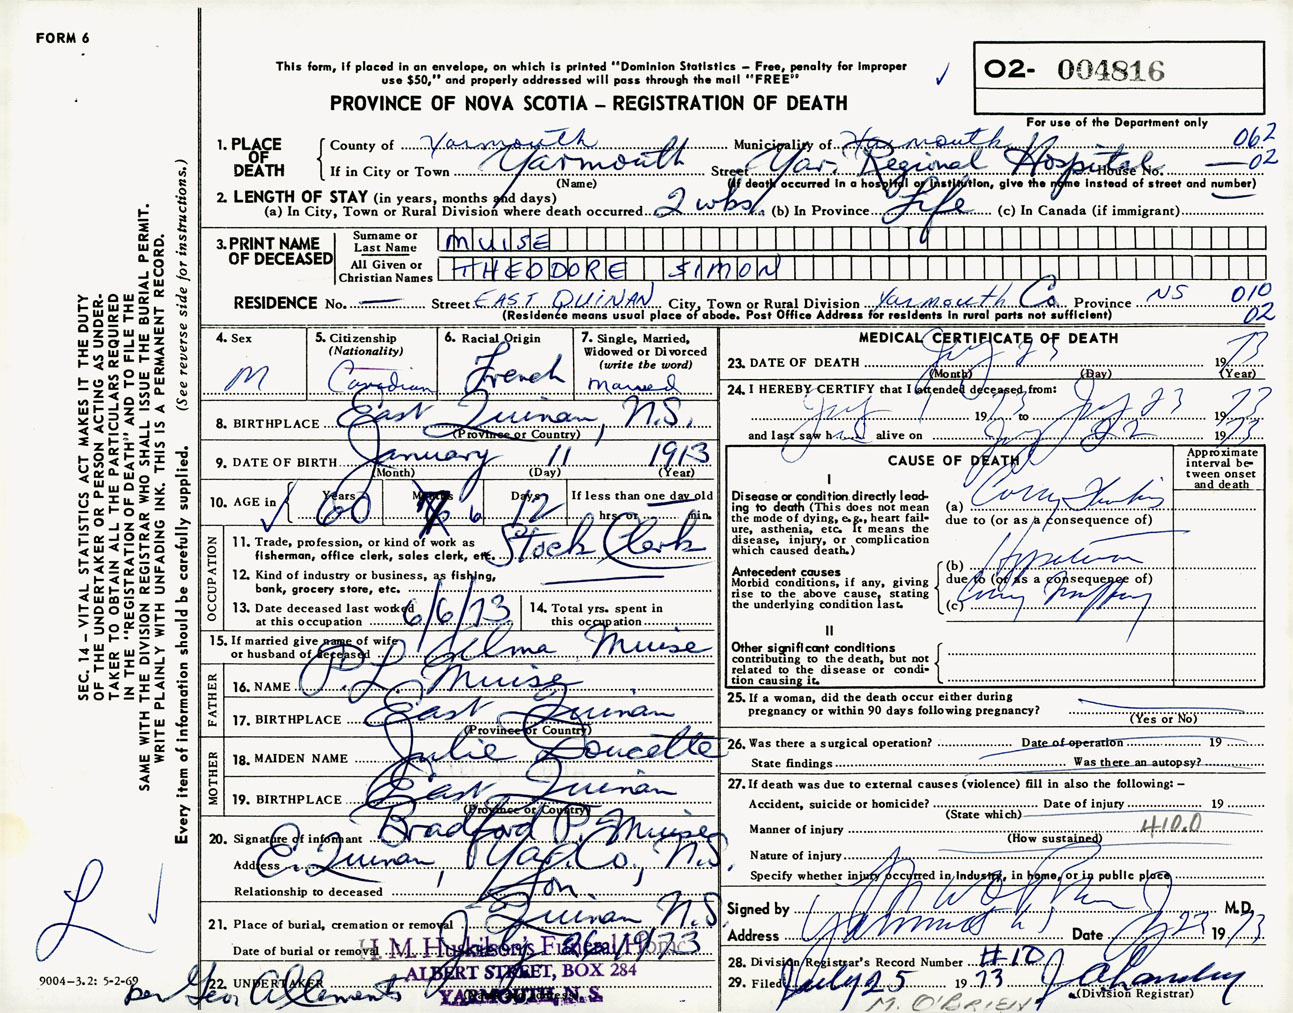 FORM 6
This form, if placed in an envelope, on which is printed "Dominion Statistics – Free, penalty for improper
use $50," and properly addressed will pass through the mail "FREE"
PROVINCE OF NOVA SCOTIA – REGISTRATION OF DEATH
02- 004816
For use of the Department only
1. PLACE OF DEATH
County of Yarmouth Municipality of Yarmouth 062
If in City or Town Yarmouth Street Yar. Regional Hospital House No. — 02
(Name) (If death occurred in a hospital or institution, give the name instead of street and number)
2. LENGTH OF STAY (in years, months and days)
(a) In City, Town or Rural Division where death occurred 2 wks. (b) In Province Life (c) In Canada (if immigrant)
3. PRINT NAME OF DECEASED
Surname or Last Name MUISE
All Given or Christian Names THEODORE SIMON
RESIDENCE No. — Street EAST QUINAN City, Town or Rural Division Yarmouth Co Province NS 010
(Residence means usual place of abode. Post Office Address for residents in rural parts not sufficient) 02
4. Sex M
5. Citizenship (Nationality) Canadian
6. Racial Origin French
7. Single, Married, Widowed or Divorced (write the word) Married
8. BIRTHPLACE East Quinan, N.S.
(Province or Country)
9. DATE OF BIRTH January 11 1913
(Month) (Day) (Year)
10. AGE in Years 60 Months 6 Days 12 If less than one day old hrs. or min.
OCCUPATION
11. Trade, profession, or kind of work as fisherman, office clerk, sales clerk, etc. Stock Clerk
12. Kind of industry or business, as fishing, bank, grocery store, etc.
13. Date deceased last worked at this occupation 6/6/73
14. Total yrs. spent in this occupation
15. If married give name of wife or husband of deceased Selma Muise
FATHER
16. NAME P. L. Muise
17. BIRTHPLACE East Quinan
(Province or Country)
MOTHER
18. MAIDEN NAME Julie Doucette
19. BIRTHPLACE East Quinan
(Province or Country)
20. Signature of informant Bradford P. Muise
Address E. Quinan, Yar. Co., N.S.
Relationship to deceased Son
21. Place of burial, cremation or removal Quinan N.S.
Date of burial or removal July 26/1973
H. M. Huskilson's Funeral Home
ALBERT STREET, BOX 284
YARMOUTH, N. S.
22. UNDERTAKER
per Geo
MEDICAL CERTIFICATE OF DEATH
23. DATE OF DEATH July 23 1973
(Month) (Day) (Year)
24. I HEREBY CERTIFY that I attended deceased from:
July 1973 to July 23 1973
and last saw him alive on July 22 1973
CAUSE OF DEATH
Approximate interval between onset and death
I
Disease or condition directly leading to death (This does not mean the mode of dying, e.g., heart failure, asthenia, etc. It means the disease, injury, or complication which caused death.)
(a)
due to (or as a consequence of)
Antecedent causes
Morbid conditions, if any, giving rise to the above cause, stating the underlying condition last.
(b)
due to (or as a consequence of)
(c)
II
Other significant conditions contributing to the death, but not related to the disease or condition causing it.
25. If a woman, did the death occur either during pregnancy or within 90 days following pregnancy?
(Yes or No)
26. Was there a surgical operation? Date of operation 19
State findings Was there an autopsy?
27. If death was due to external causes (violence) fill in also the following: –
Accident, suicide or homicide? Date of injury 19
(State which)
Manner of injury 410.0
(How sustained)
Nature of injury
Specify whether injury occurred in industry, in home, or in public place
Signed by M.D.
Address Yarmouth NS Date July 23 1973
28. Division Registrar's Record Number #10
29. Filed July 25 1973
(Division Registrar)
M. O'BRIEN
SEC. 14 – VITAL STATISTICS ACT MAKES IT THE DUTY
OF THE UNDERTAKER OR PERSON ACTING AS UNDER-
TAKER TO OBTAIN ALL THE PARTICULARS REQUIRED
IN THE "REGISTRATION OF DEATH" AND TO FILE THE
SAME WITH THE DIVISION REGISTRAR WHO SHALL ISSUE THE BURIAL PERMIT.
WRITE PLAINLY WITH UNFADING INK. THIS IS A PERMANENT RECORD.
Every item of information should be carefully supplied. (See reverse side for instructions.)
9004–3.2: 5-2-69